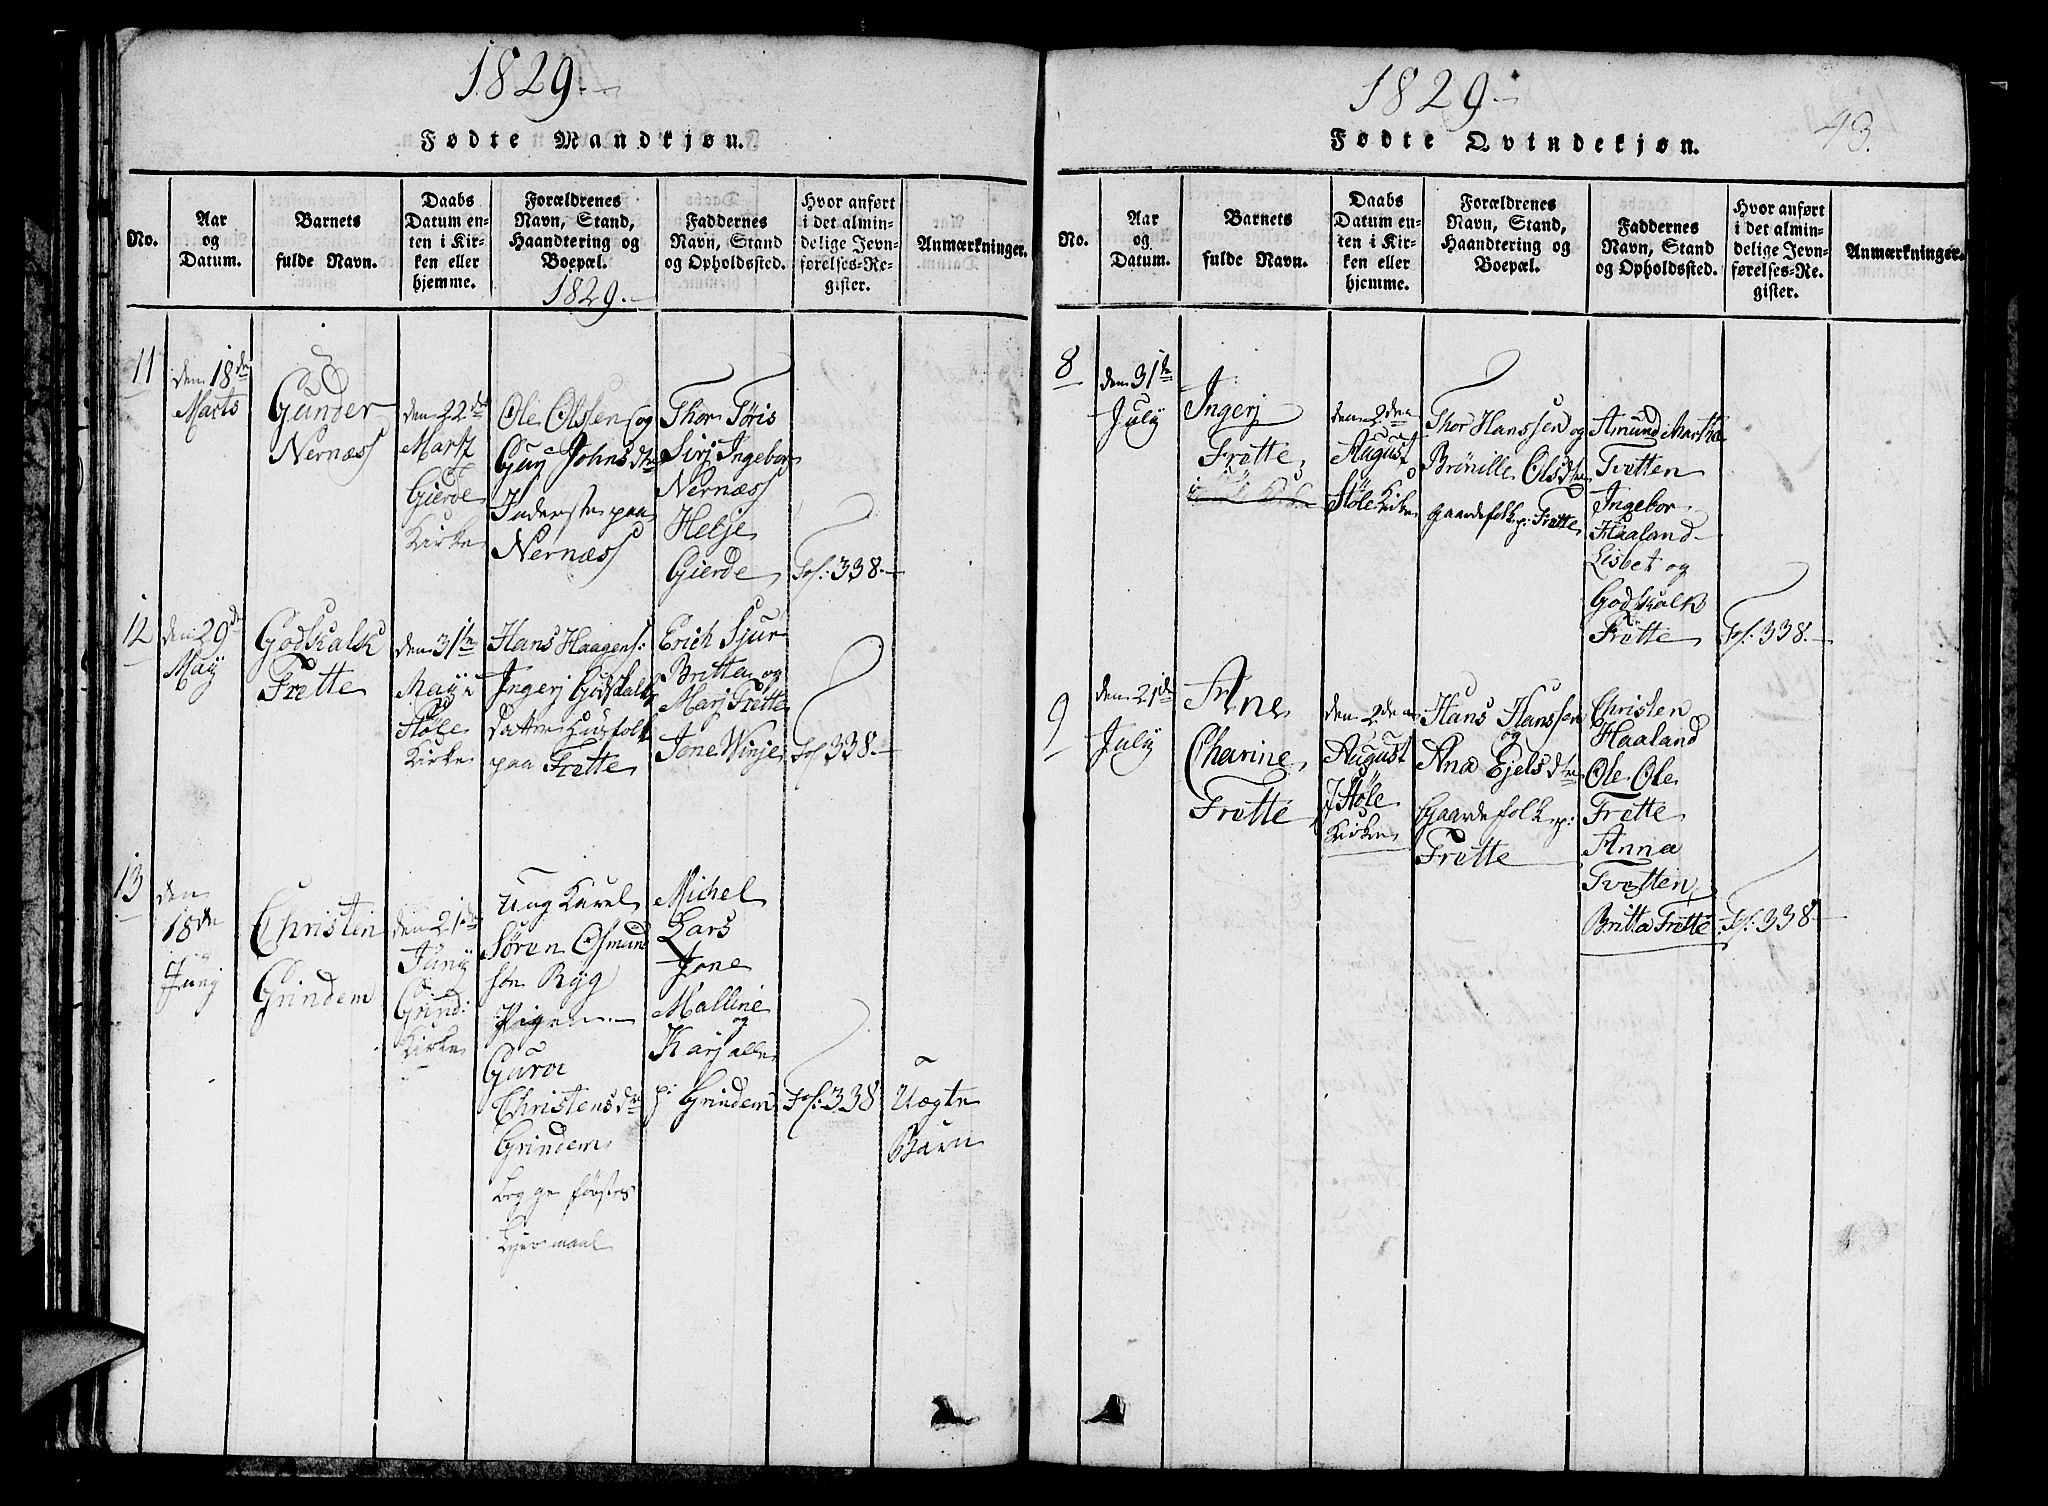 1829.
Fødte Mandkjøn.
No.
Aar
og
Datum.
Barnets
fulde Navn.
Daabs
Datum en-
ten i Kir-
ken eller
hjemme.
Forældrenes
Navn, Stand,
Haandtering og
Boepæl.
1829.
Faddernes
Navn, Stand
og Opholdssted.
Hvor anført
i det almin-
delige Jevn-
førelses-Re-
gister.
Anmærkninger.
11
den 18de
Marts
Gunder
Nernæss
den 22de
Martz
Gierde
Kirke
Ole Olssen og
Guri Johnsdtr
Inderste paa
Nernæss
Thor Töris
Sirj Ingebor
Nernæss
Helje
Gierde
Fol: 338.
12
den 29de
May
Godskalk
Frette
den 31te
May i
Støle
Kirke
Hans Haagens:
Ingerj Godskalks
datter Husfolk
paa Frette
Erich Sjur
Britta og
Marj Frette
Jone Winje
Fol: 338.
13
den
18de
Junj
Christen
Grindem
den 21de
Juny
Grind:
Kirke
Ung Karel
Søren Osmund
søn Ryg
Pigen
Guroe
Christensdtr
Grindem
begge første
Leiermaal
Michel
Lars
Jone
Malline
og
Karj alle
p: Grindem
Fol: 338
Uægte
Barn
1829.
43.
Fødte Qvindekjøn.
No.
Aar
og
Datum.
Barnets
fulde Navn.
Daabs
Datum en-
ten i Kir-
ken eller
hjemme.
Forældrenes
Navn, Stand,
Haandtering og
Boepæl.
Faddernes
Navn, Stand
og Opholdssted.
Hvor anført
i det almin-
delige Jevn-
førelses-Re-
gister.
Anmærkninger.
8
den 31te
July
Ingerj
Frette
den 2den
August
Støle Kirke
Thor Hanssen og
Brönille Olsdtr
gaardefolk p: Frette
Amund Martha
Tvetten
Ingebor
Haaland
Lisbet og
Godskalk
Frette
Fol: 338.
9
den 21de
July
Ane
Charine
Frette
den 2den
August
i Støle
Kirke
Hans Hanssen
og
Ana Ejelsdtr
Gaardefolk p:
Frette
Christen
Haaland
Ole Ole
Frette
Anna
Tvetten
Britta Frette
Fol: 338